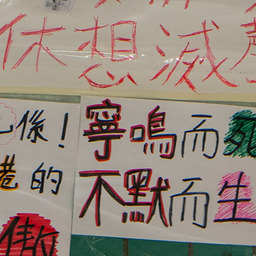 休想滅聲
係！
港的
傲
寧鳴而死
不默而生